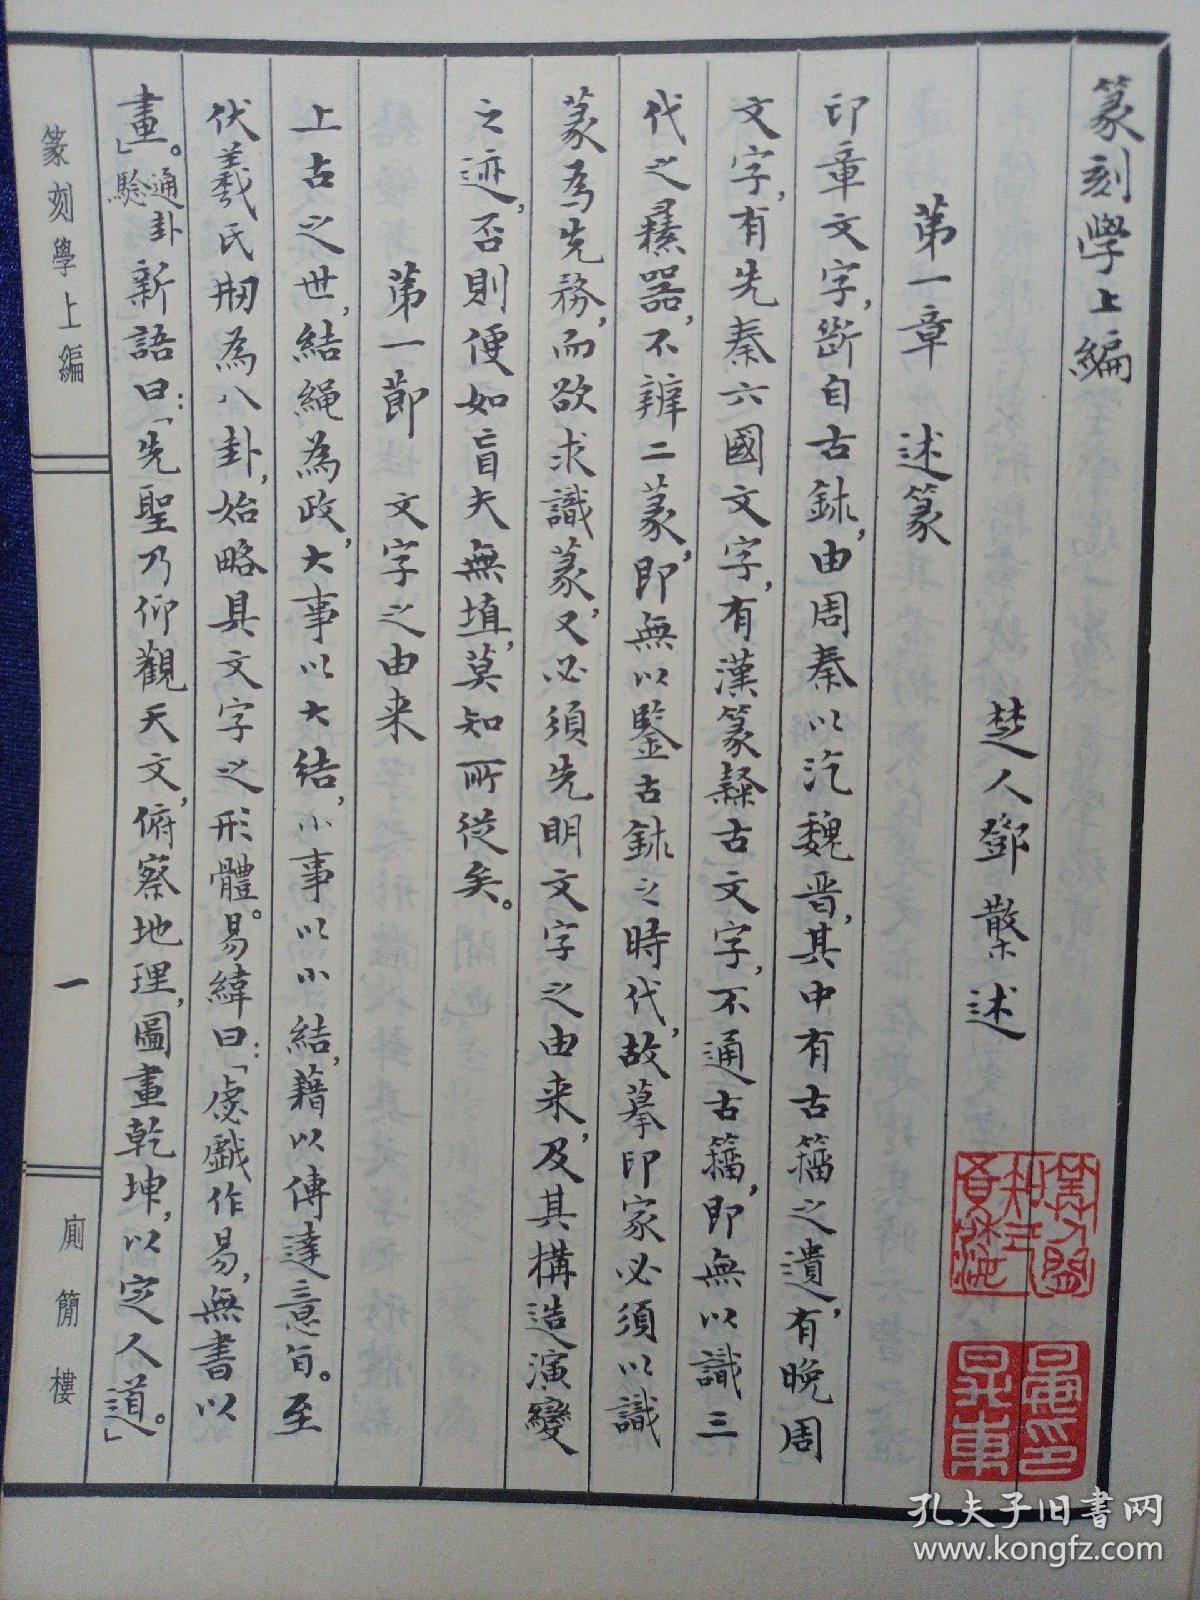 篆刻學上編
楚人鄧散木述
第一章　述篆
印章文字，斷自古鉥，由周秦以汔魏晋，其中有古籀之遺，有晚周
文字，有先秦六國文字，有漢篆繇古文字，不通古籀，即無以識三
代之彝器，不辨二篆，即無以鑒古鉥之時代，故摹印家必須以識
篆為先務，而欲求識篆，又必須先明文字之由来，及其構造演變
之迹，否則便如盲夫無埴，莫知所從矣。
第一節　文字之由来
上古之世，結繩為政，大事以大結，小事以小結，藉以傳達意旨。至
伏羲氏剏為八卦，始略具文字之形體。易緯曰：「虙戲作易，無書以
畫」。通卦驗新語曰：「先聖乃仰觀天文，俯察地理，圖畫乾坤，以定人道。」
篆刻學上編
一
廁簡樓
孔夫子旧书网
www.kongfz.com